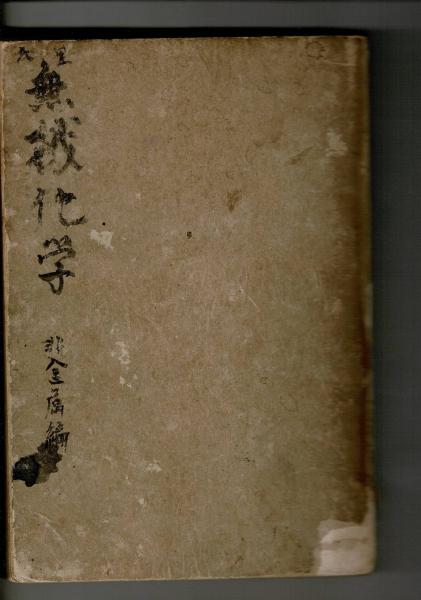 無機化学
非金属編